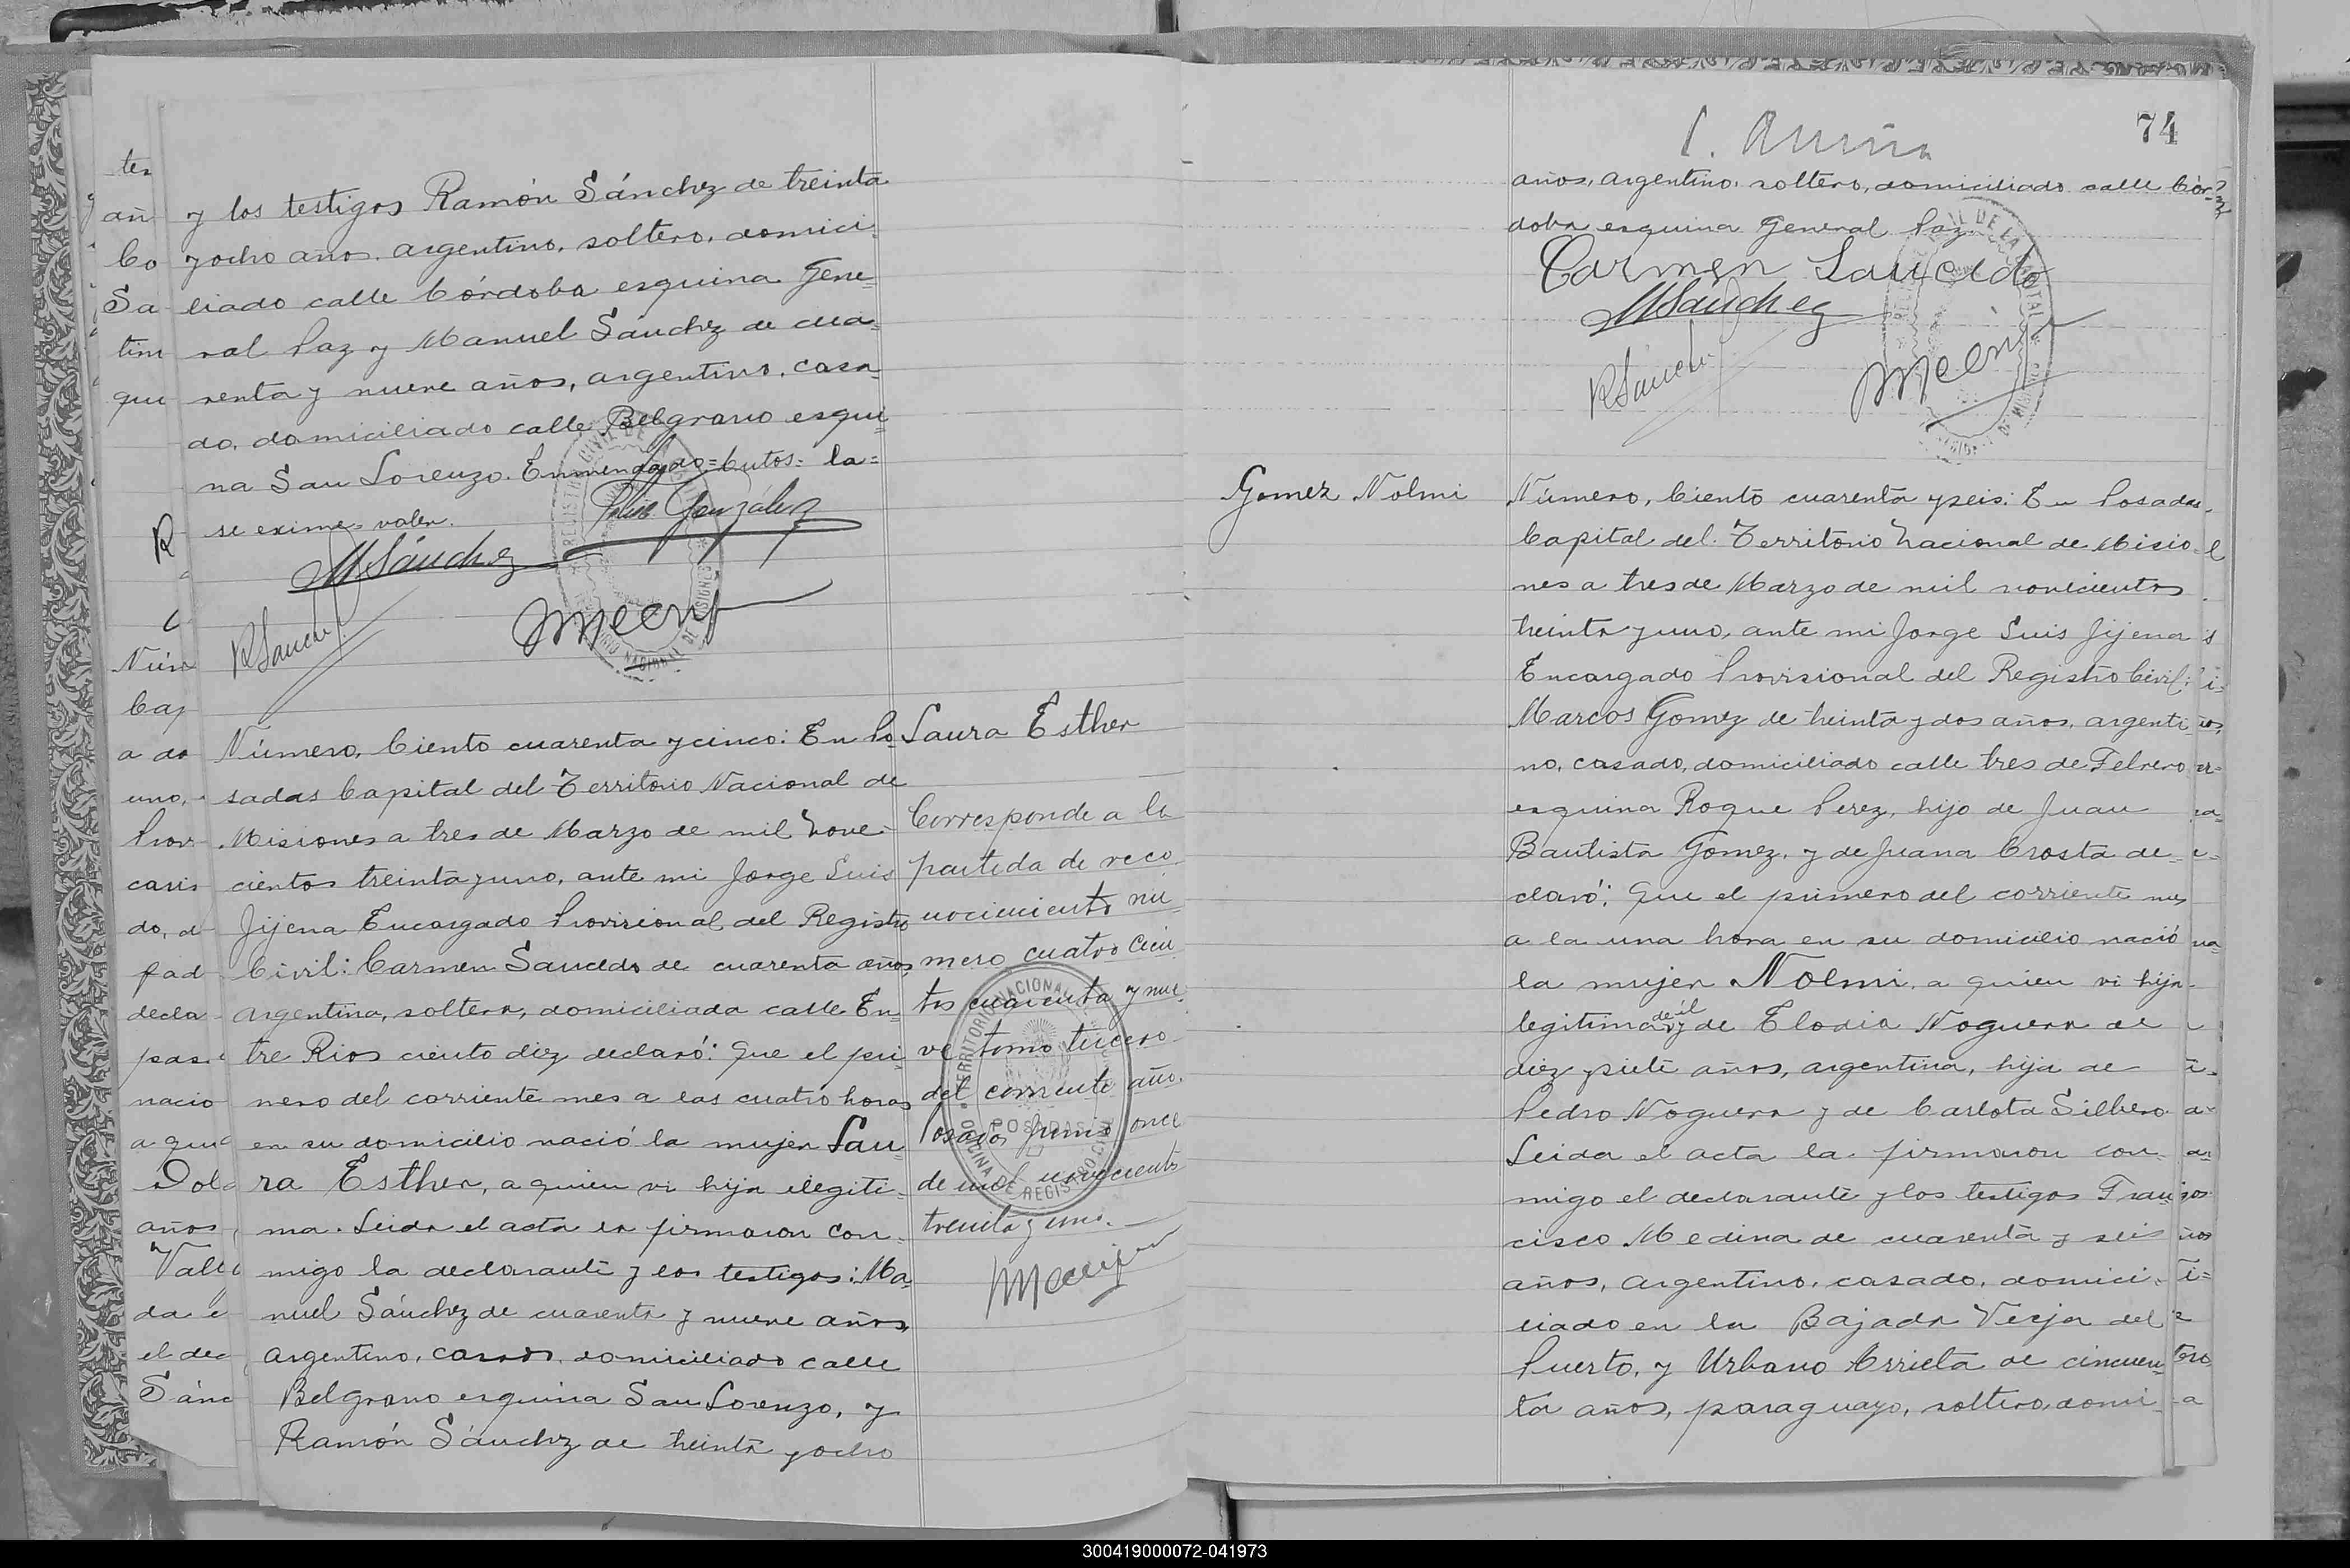 y los testigos Ramón Sánchez de treinta
y ocho años, argentino, soltero, domici-
liado calle Córdoba esquina Gene-
ral Paz y Manuel Sánchez de cua-
renta y nueve años, argentino, casa-
do, domiciliado calle Belgrano esqui-
na San Lorenzo. Enmendado= la=
se exime= valen.
González
MSánchez
RSanch
Número, Ciento cuarenta y cinco: En Po-
sadas Capital del Territorio Nacional de
Misiones a tres de Marzo de mil nove-
cientos treinta y uno, ante mi Jorge Luis
Jijena Encargado Provisional del Registro
Civil: Carmen Saucedo de cuarenta años,
argentina, soltera, domiciliada calle En-
tre Rios ciento diez declaró: Que el pri-
mero del corriente mes a las cuatro horas
en su domicilio nació la mujer Lau-
ra Esther, a quien vi hija ilegiti-
ma. Leida el acta la firmaron con-
migo la declarante y los testigos: Ma-
nuel Sánchez de cuarenta y nueve años,
argentino, casado, domiciliado calle
Belgrano esquina San Lorenzo, y
Ramón Sánchez de treinta y ocho
Laura Esther
Corresponde a la
partida de reco
nocimiento nu-
mero cuatro cien
tos cuarenta y nue-
ve tomo tercero
del corriente año.
Posadas Junio once
de mil novecientos
treinta y uno.
TERRITORIO NACIONAL
POSADAS
OFICINA DE REGISTRO CIVIL
74
años, argentino, soltero, domiciliado calle Cór-
doba esquina General Paz.
Carmen Saucedo
MSánchez
RSanch
Gomez Nolmi
Número, Ciento cuarenta y seis: En Posadas,
Capital del Territorio Nacional de Misio-
nes a tres de Marzo de mil novecientos
treinta y uno, ante mi Jorge Luis Jijena
Encargado Provisional del Registro Civil:
Marcos Gomez de treinta y dos años, argenti
no, casado, domiciliado calle tres de Febrero
esquina Roque Perez, hijo de Juan
Bautista Gomez, y de Juana Crosta de-
claró: Que el primero del corriente mes
a la una hora en su domicilio nació
la mujer Nolmi, a quien vi hija
legitima de él y de Elodia Noguera de
diez y siete años, argentina, hija de
Pedro Noguera y de Carlota Silbero.
Leida el acta la firmaron con-
migo el declarante y los testigos Fran
cisco Medina de cuarenta y seis
años, argentino, casado, domici-
liado en la Bajada Vieja del
Puerto, y Urbano Arrieta de cincuen-
ta años, paraguayo, soltero, domi-
300419000072-041973